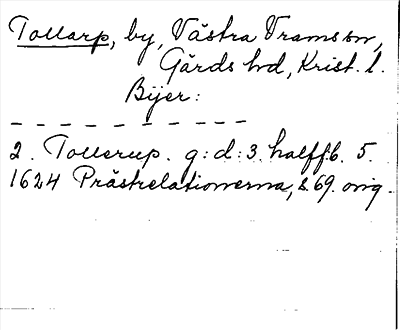 Tollarp, by, Västra Vrams sn,
Gärds hd, Krist. l.
Bijer:
2. Tollerup. g:d: 3. halff:b. 5.
1624 Prästrelationerna, s. 69. orig.